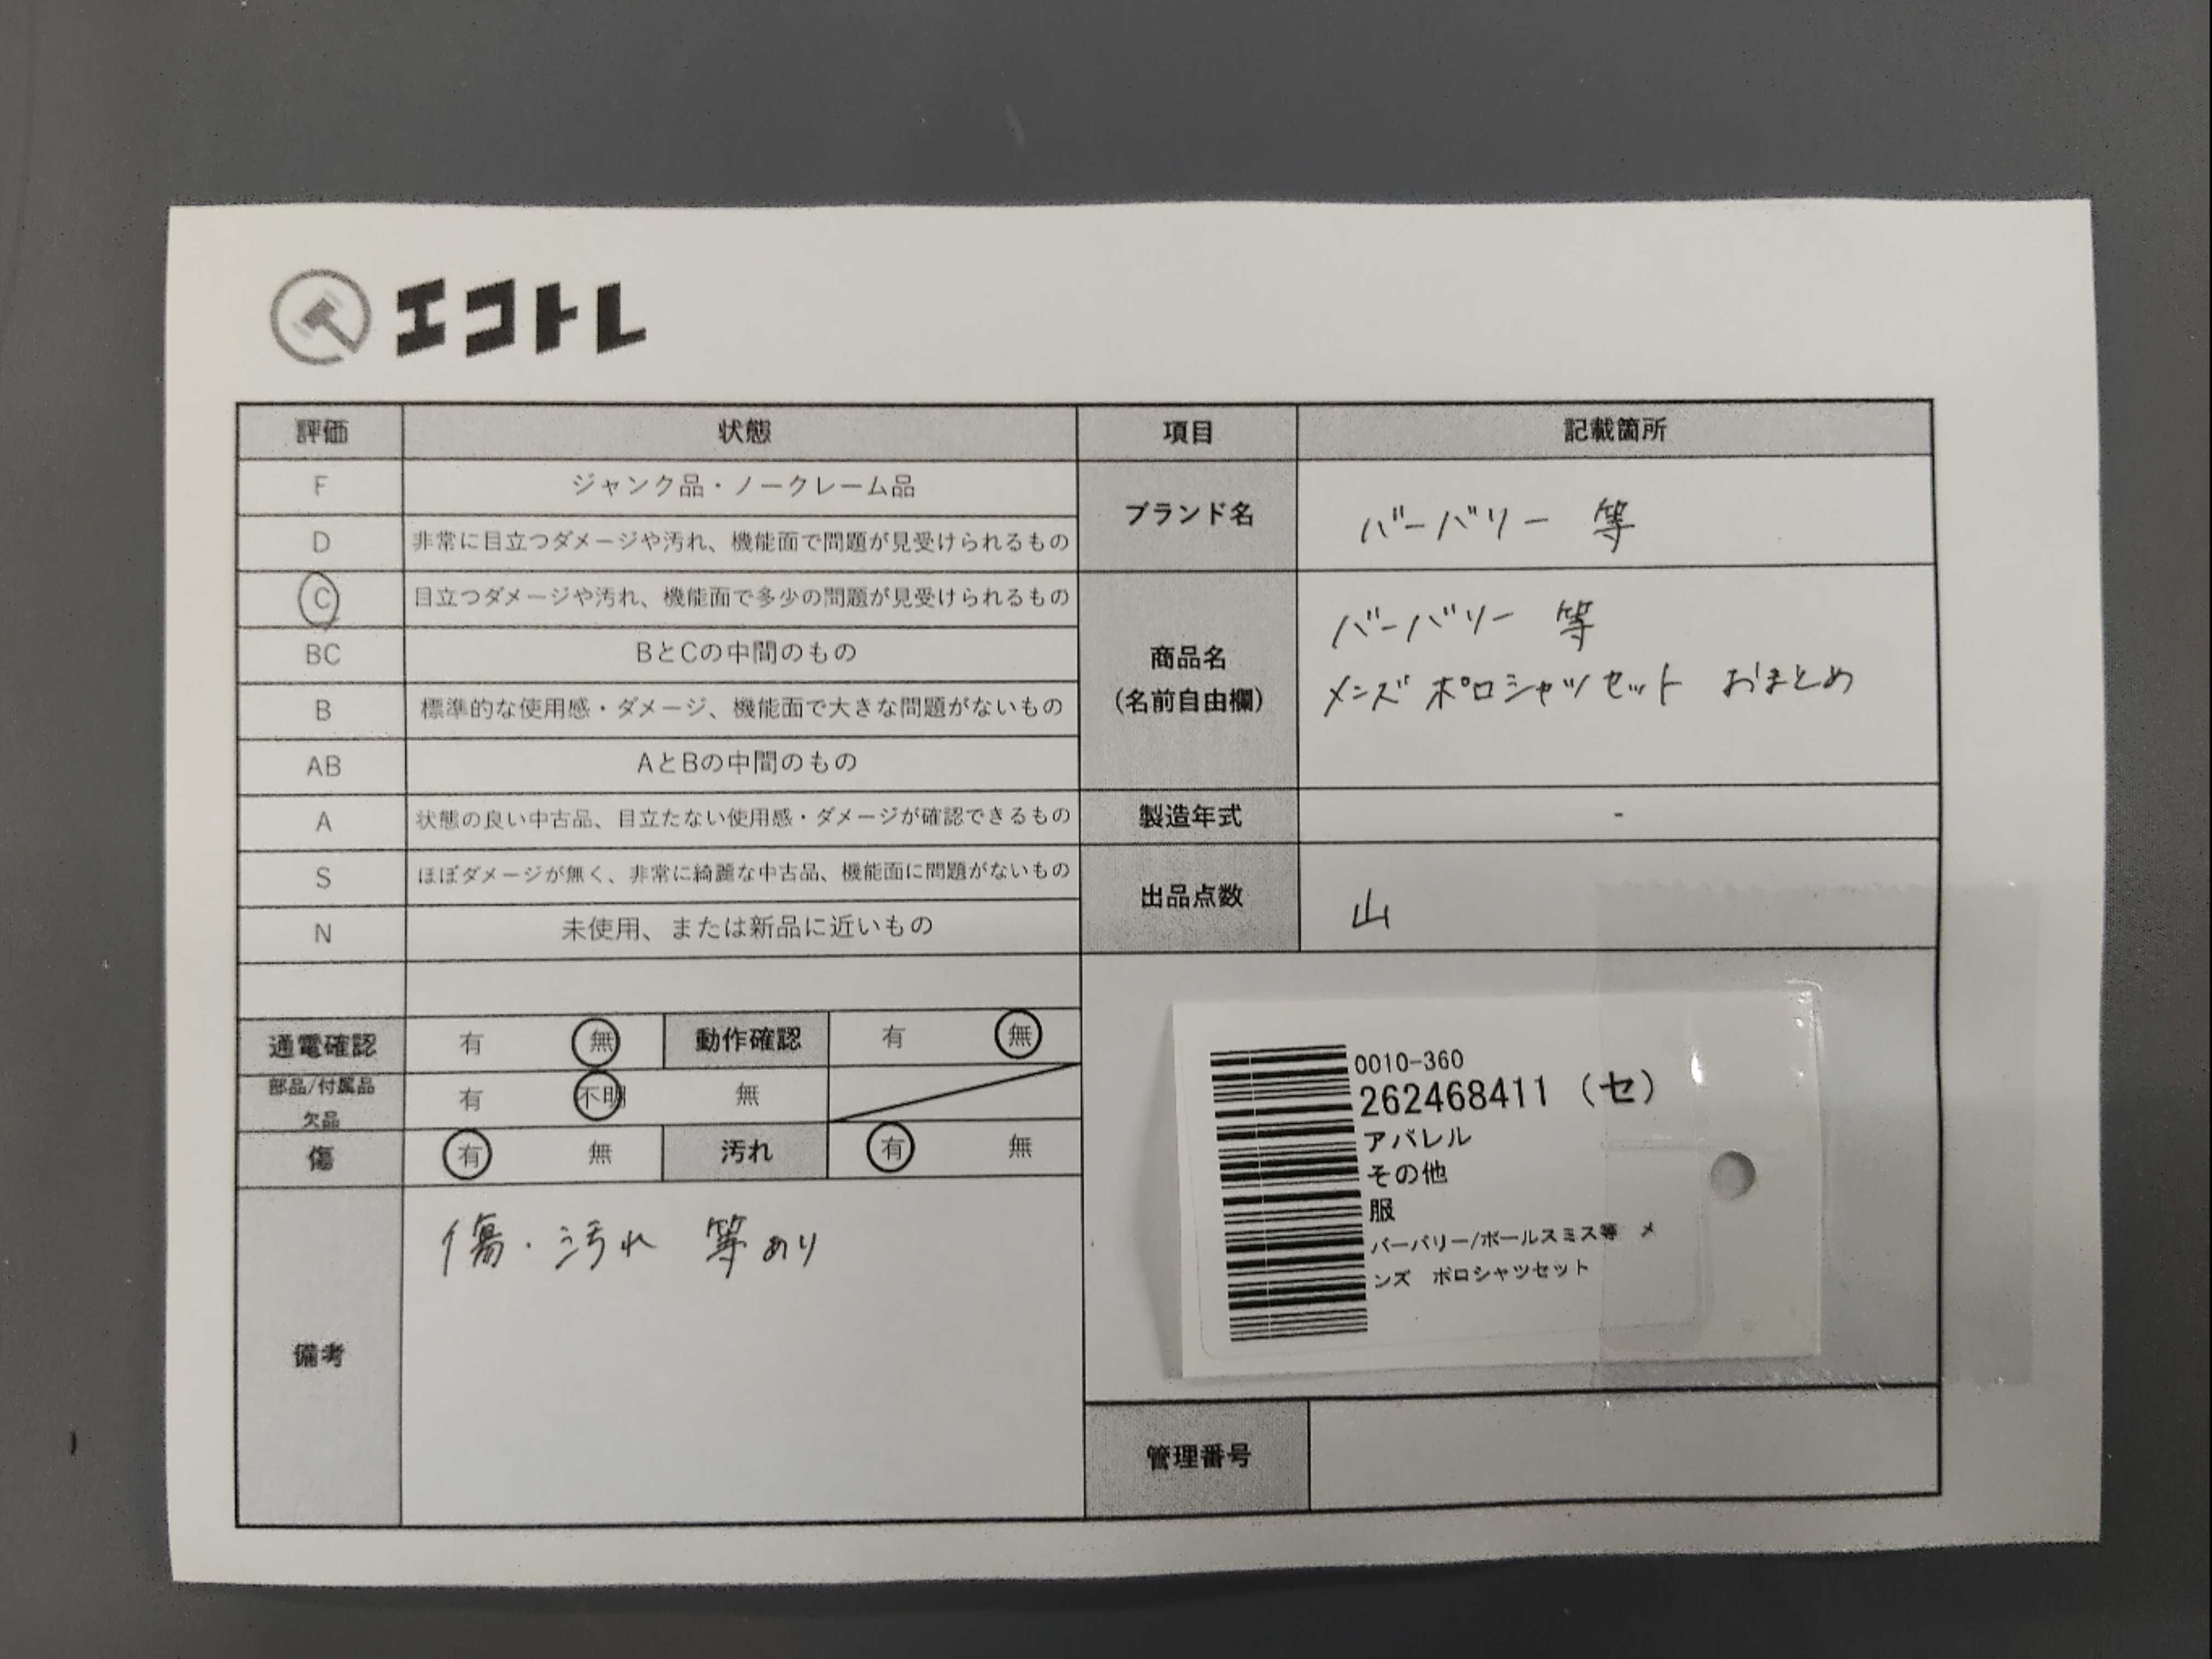 エコトレ
評価 状態 項目 記載箇所
F ジャンク品・ノークレーム品
D 非常に目立つダメージや汚れ、機能面で問題が見受けられるもの
C 目立つダメージや汚れ、機能面で多少の問題が見受けられるもの
BC BとCの中間のもの
B 標準的な使用感・ダメージ、機能面で大きな問題がないもの
AB AとBの中間のもの
A 状態の良い中古品、目立たない使用感・ダメージが確認できるもの
S ほぼダメージが無く、非常に綺麗な中古品、機能面に問題がないもの
N 未使用、または新品に近いもの
通電確認 有 無 動作確認 有 無
部品/付属品
欠品
有 不明 無
傷 有 無 汚れ 有 無
備考
傷・汚れ 等あり
ブランド名 バーバリー 等
商品名
(名前自由欄)
バーバリー 等
メンズ ポロシャツセット おまとめ
製造年式 -
出品点数 山
0010-360
262468411 (セ)
アパレル
その他
服
バーバリー/ポールスミス等 メ
ンズ ポロシャツセット
管理番号